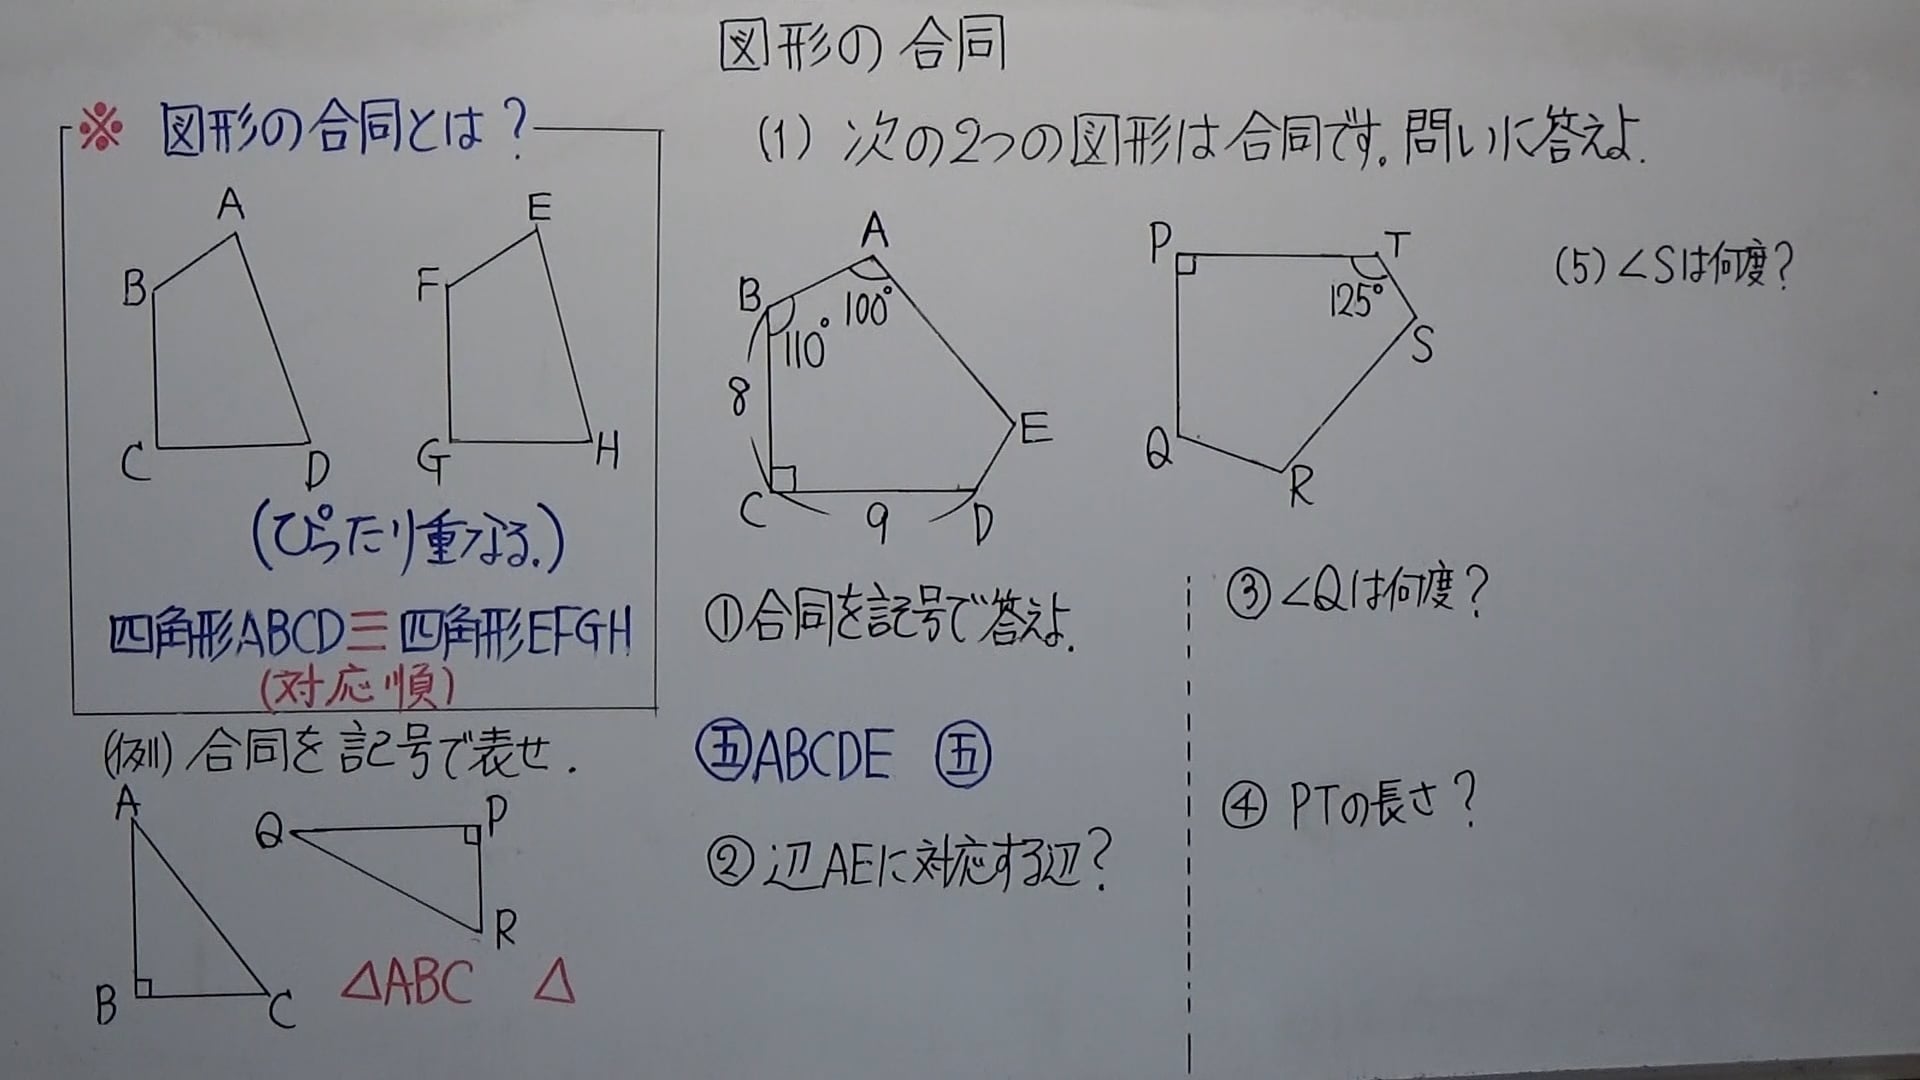 図形の合同
※ 図形の合同とは?
A
B
C
D
E
F
G
H
(ぴったり重なる.)
四角形ABCD≡四角形EFGH
(対応順)
(例) 合同を記号で表せ.
A
B
C
Q
P
R
△ABC △
(1) 次の2つの図形は合同です。問いに答えよ.
A
B
100°
110°
8
E
C
9
D
P
T
125°
S
Q
R
①合同を記号で答えよ.
㊄ABCDE ㊄
②辺AEに対応する辺?
③∠Qは何度?
④ PTの長さ?
(5)∠Sは何度?